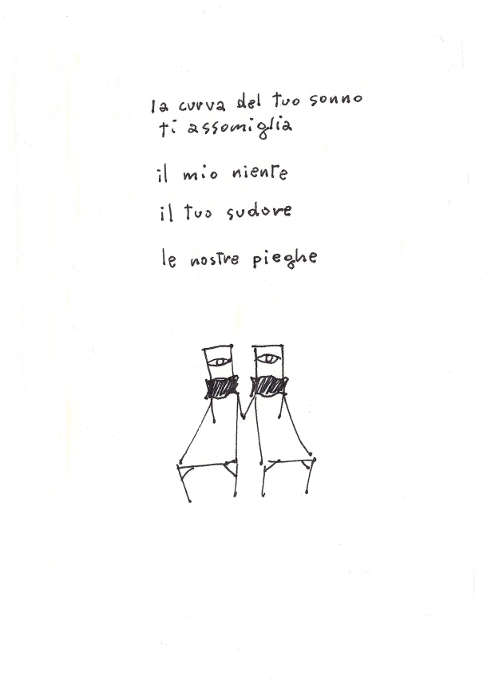 la curva del tuo sonno
ti assomiglia
il mio niente
il tuo sudore
le nostre pieghe